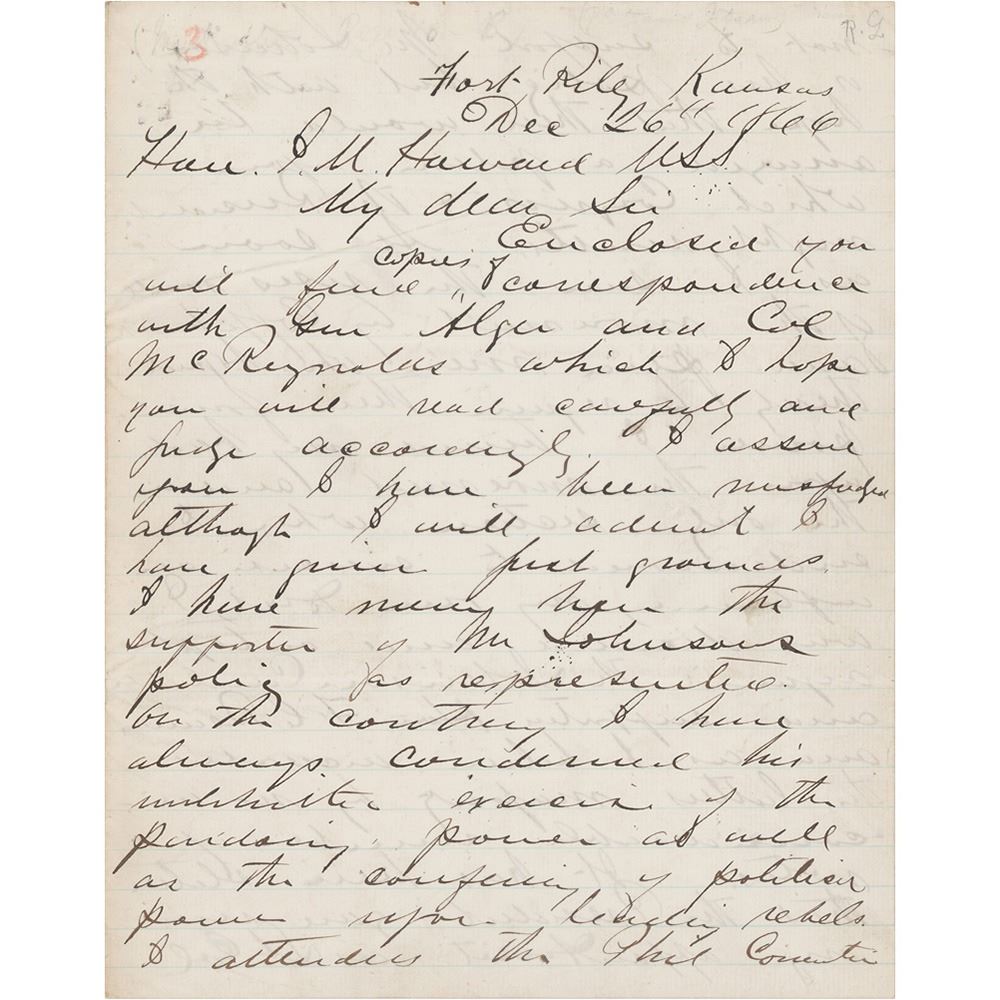 3
R. L
Fort Riley Kansas
Dec 26" 1866
Hon. J. M. Howard U.S.S.
My dear Sir
Enclosed you
will find copies of correspondence
with Gen Alger and Col
McReynolds which I hope
you will read carefully and
judge accordingly. I assure
you I have been misjudged
although I will admit I
have given just grounds.
I have never been the
supporter of Mr Johnsons
policy as represented.
On the contrary I have
always condemned his
unlimited exercise of the
pardoning power as well
as the confering of political
power upon leading rebels.
I attended the Phil Convention